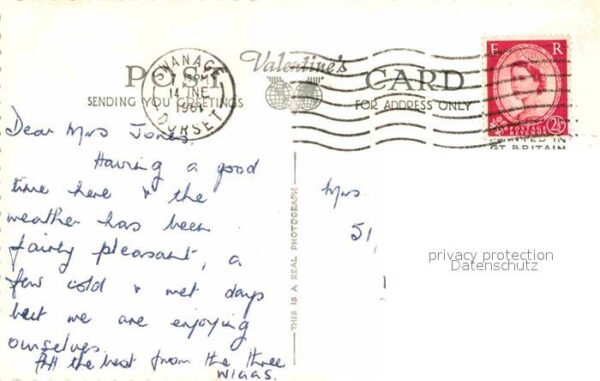 SWANAGE
PM
14 JNE
1961
DORSET
Valentine's
POST CARD
SENDING YOU GREETINGS
FOR ADDRESS ONLY
E R
POSTAGE REVENUE
2½D
PRINTED IN
GT BRITAIN
Dear Mrs Jones,
Having a good
time here & the
weather has been
fairly pleasant, a
few cold & wet days
but we are enjoying
ourselves.
All the best from the three
WIGGS.
THIS IS A REAL PHOTOGRAPH
Mrs
51,
privacy protection
Datenschutz